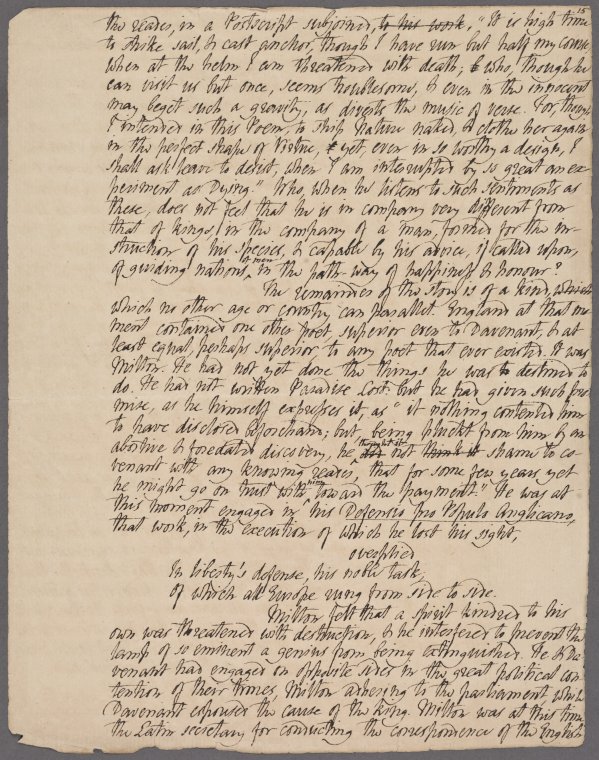 15
the reader, in a Postscript subjoined, to his work, "It is high time
to strike sail, & cast anchor, though I have run but half my course,
when at the helm I am threatened with death; & who, though he
can visit us but once, seems troublesome, & even in the innocent
may beget such a gravity, as diverts the music of verse. For, though
I intended in this Poem, to strip Nature naked, & clothe her again
in the perfect shape of Virtue, & yet, even in so worthy a design, I
shall ask leave to desist, when I am interrupted by so great an ex-
periment as Dying." Who, when he listens to such sentiments as
these, does not feel that he is in company very different from
that of kings, in the company of a man, formed for the in-
struction of his species, & capable by his advice, if called upon,
of guiding nations & men in the path-way of happiness & honour?
The remainder of the story is of a kind, which
which no other age or country can parallel. England at that mo-
ment contained one other poet superior even to Davenant, & at
least equal, perhaps superior, to any poet that ever existed. It was
Milton. He had not yet done the things he was to destined to
do. He had not written Paradise Lost: but he had given such pro-
mise, as he himself expresses it, as "it nothing contented him
to have disclosed beforehand; but, being pluckt from him by an
abortive & foredated discovery, he did thought it not think it shame to co-
venant with any knowing reader, that for some few years yet
he might go on trust with him toward the payment." He was at
this moment engaged in his Defensio pro Populo Anglicano,
that work, in the execution of which he lost his sight,
overplied
In liberty's defense, his noble task,
Of which all Europe rung from side to side.
Milton felt that a spirit kindred to his
own was threatened with destruction, & he interfered to prevent the
lamp of so eminent a genius from being extinguished. He & Da-
venant had engaged on opposite sides in the great political con-
tention of their times, Milton adhering to the parliament while
Davenant espoused the cause of the king. Milton was at this time
the Latin secretary for conducting the correspondence of the English